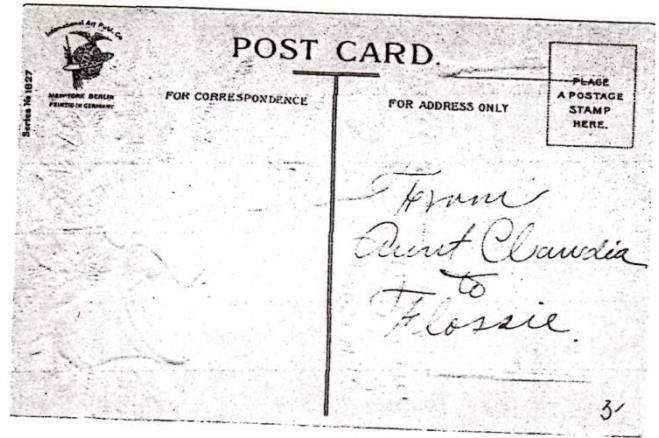 International Art Publ. Co.
NEW YORK BERLIN
PRINTED IN GERMANY
Series No 1827
POST CARD.
FOR CORRESPONDENCE
FOR ADDRESS ONLY
PLACE
A POSTAGE
STAMP
HERE.
From
Aunt Claudia
to
Flossie.